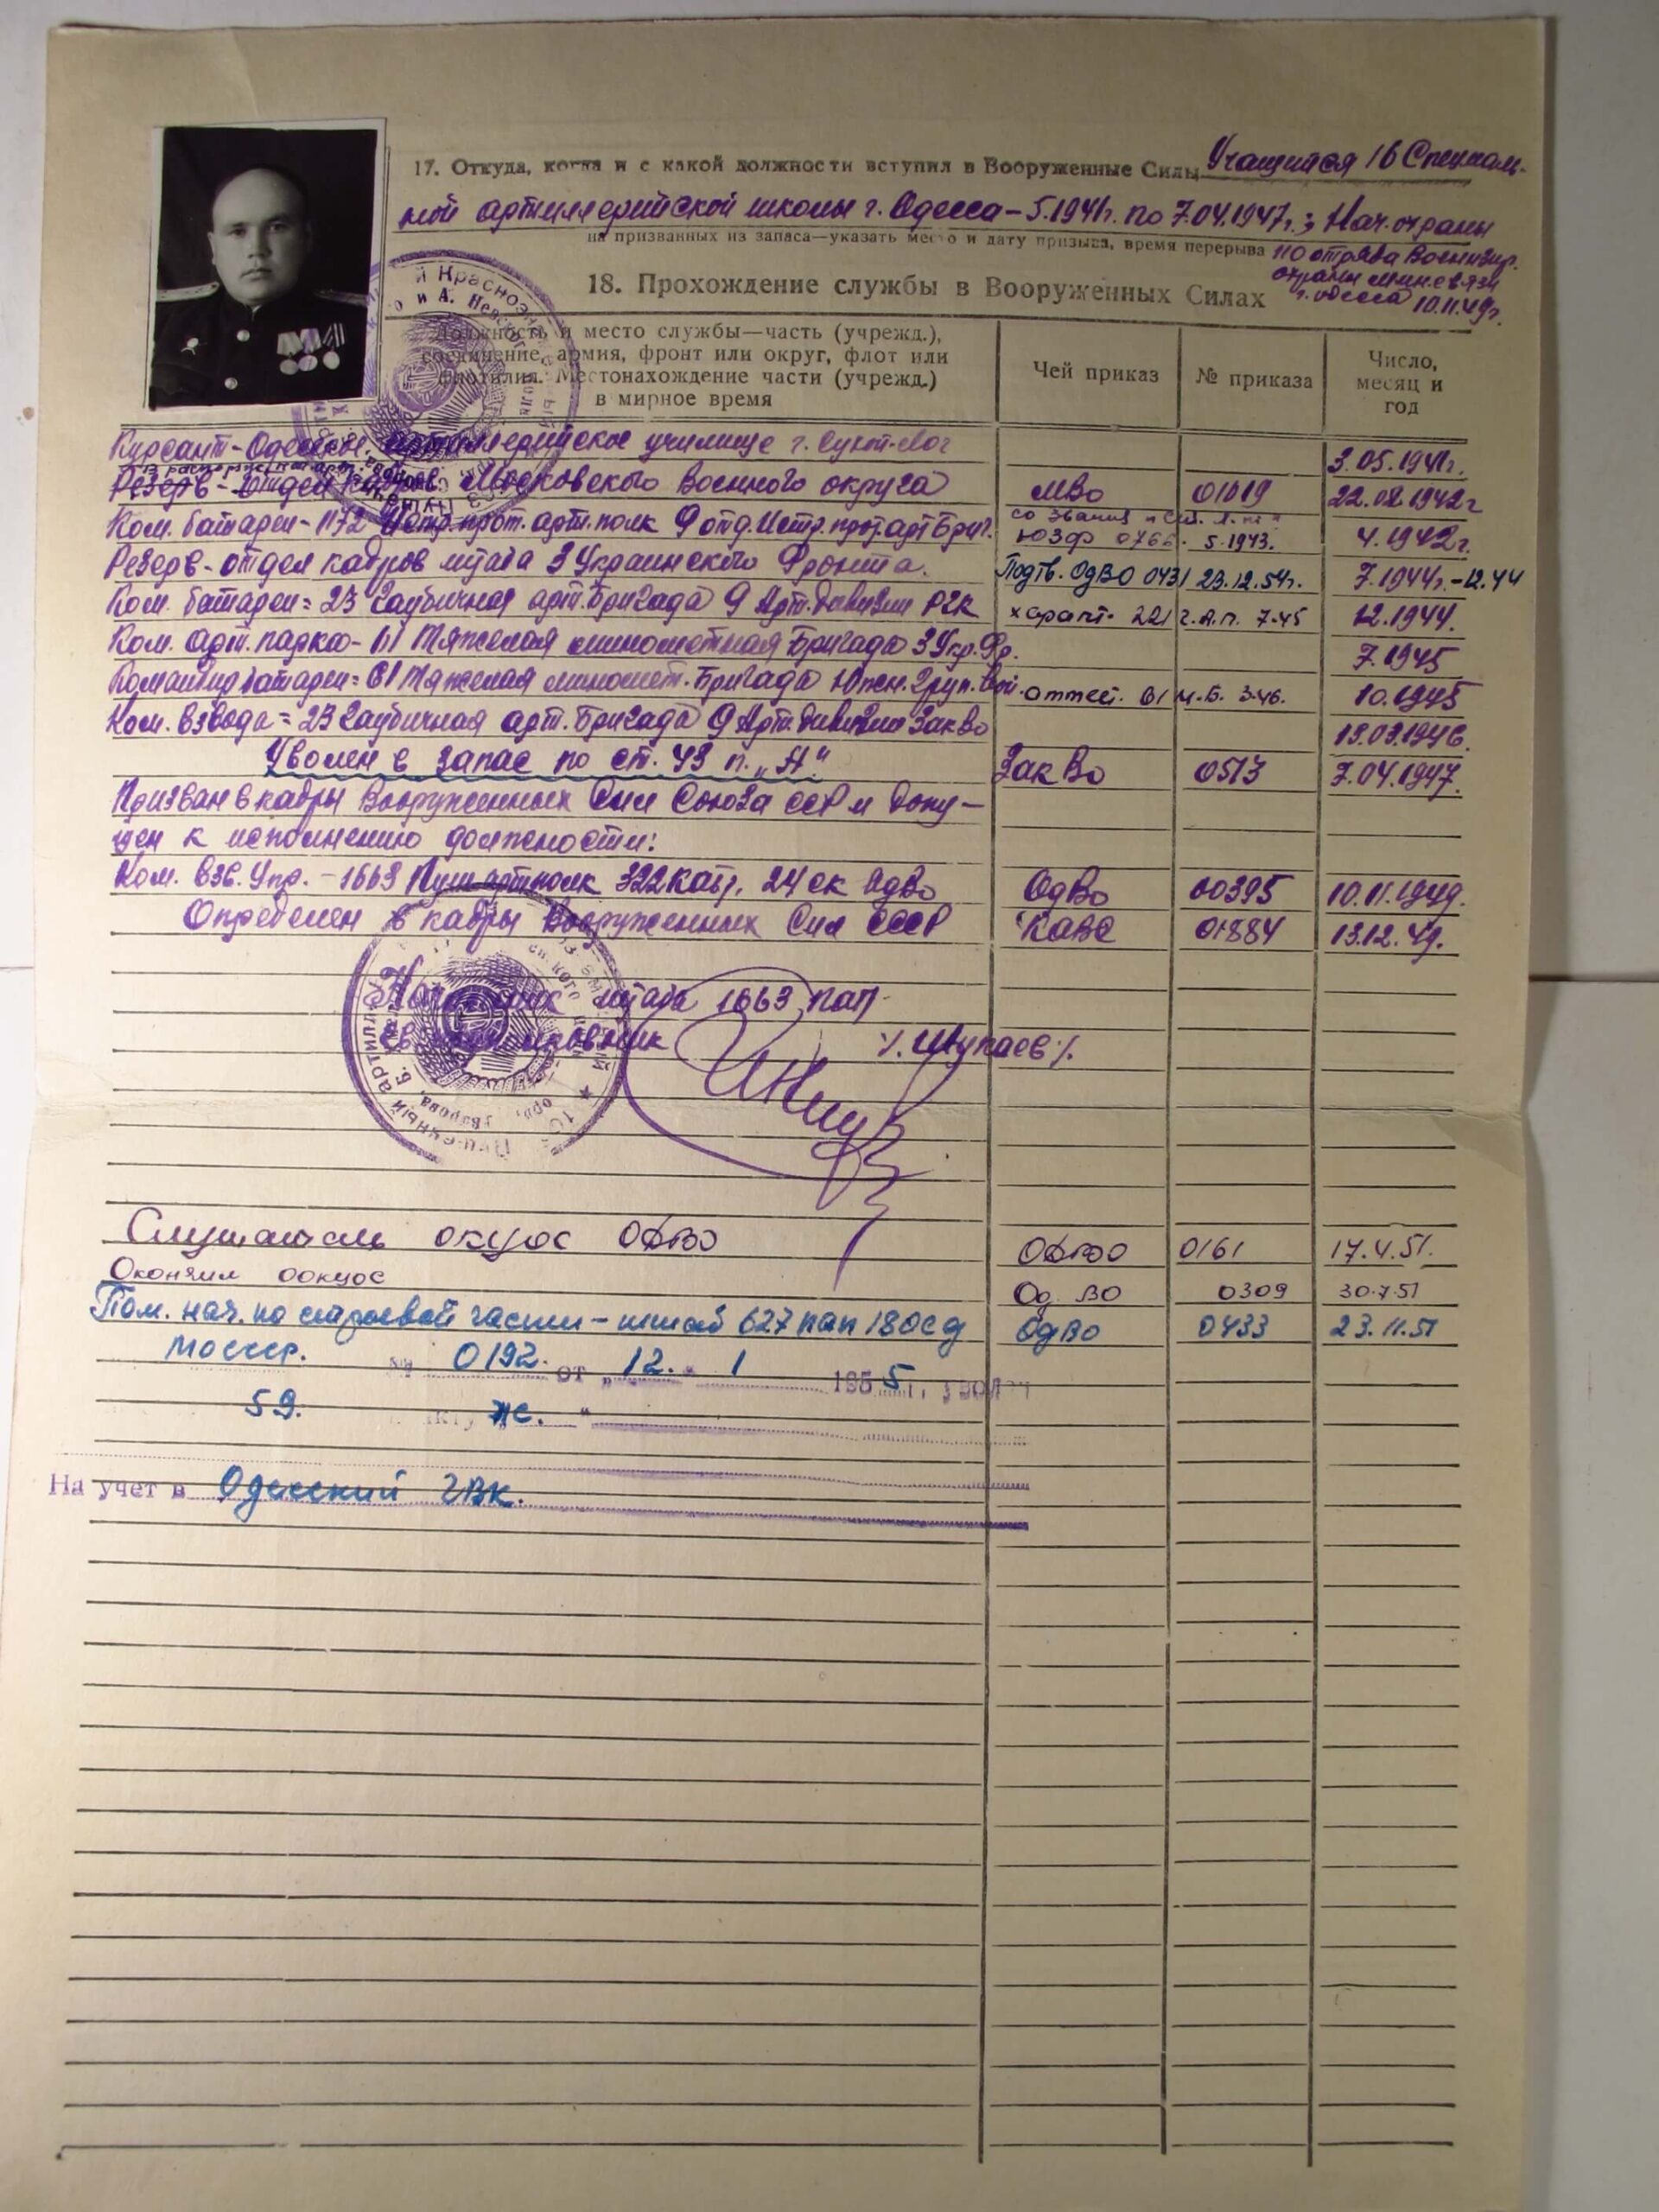 17. Откуда, когда и с какой должности вступил в Вооруженные Силы Учащийся 16 Специаль-
ной артиллерийской школы г. Одесса – 5.1941г. по 7.04.1947г.; Нач. охраны
на призванных из запаса—указать место и дату призыва, время перерыва 110 отряда Военизир.
охраны г. Одесса 10.11.49г.
18. Прохождение службы в Вооруженных Силах
Должность и место службы—часть (учрежд.), соединение, армия, фронт или округ, флот или флотилия. Местонахождение части (учрежд.) в мирное время
Чей приказ
№ приказа
Число, месяц и год
Курсант – Одесское артиллерийское училище г. 3.05.1941г.
Резерв – отдел кадров Московского Военного округа МВо 01019 22.08.1942г
Ком. батареи – 1172 Истр. прот. арт. полк 9 отд. Истр. прот. арт Бриг. ЮЗФ 5.1943. 4.1942г.
Резерв – отдел кадров штаба 3 Украинского Фронта. Подтв. ОдВО 0431 23.12.54г. 7.1944г. – 12.44
Ком. батареи = 23 Гаубичная арт. Бригада 9 Арт. дивизии РГК характ. 221 г.а.п. 7.45 12.1944.
Ком. арт. парка – 61 Тяжелая минометная Бригада 3 Укр. Фр. 7.1945
Командир батареи = 61 Тяжелая миномет. Бригада Южн. Груп. Вой. аттест. 61 м.б. 3.46. 10.1945
Ком. взвода = 23 Гаубичная арт. Бригада 9 Арт. дивизии ЗакВо 13.03.1946.
Уволен в запас по ст. 43 п. „А" ЗакВо 0513 7.04.1947.
Призван в кадры Вооруженных Сил Союза ССР и допу-
щен к исполнению должности:
Ком. взв. Упр. – 1663 Пуш артполк 24 ск ОдВо ОдВо 00395 10.11.1949г.
Определен в кадры Вооруженных Сил СССР КАВС 01884 13.12.49.
Начальник штаба 1663 пап
/. Шупаев /.
Слушатель окуос ОдВО ОдВО 0161 17.4.51.
Окончил оокуос Од ВО 0309 30.7.51
Пом. нач. по строевой части – штаб 627 пап 180сд ОдВО 0433 23.11.51
МОСССР. № 0192 от „12." 1 1955 г. уволен
59. пункту „Ж."
На учет в Одесский ГВК.